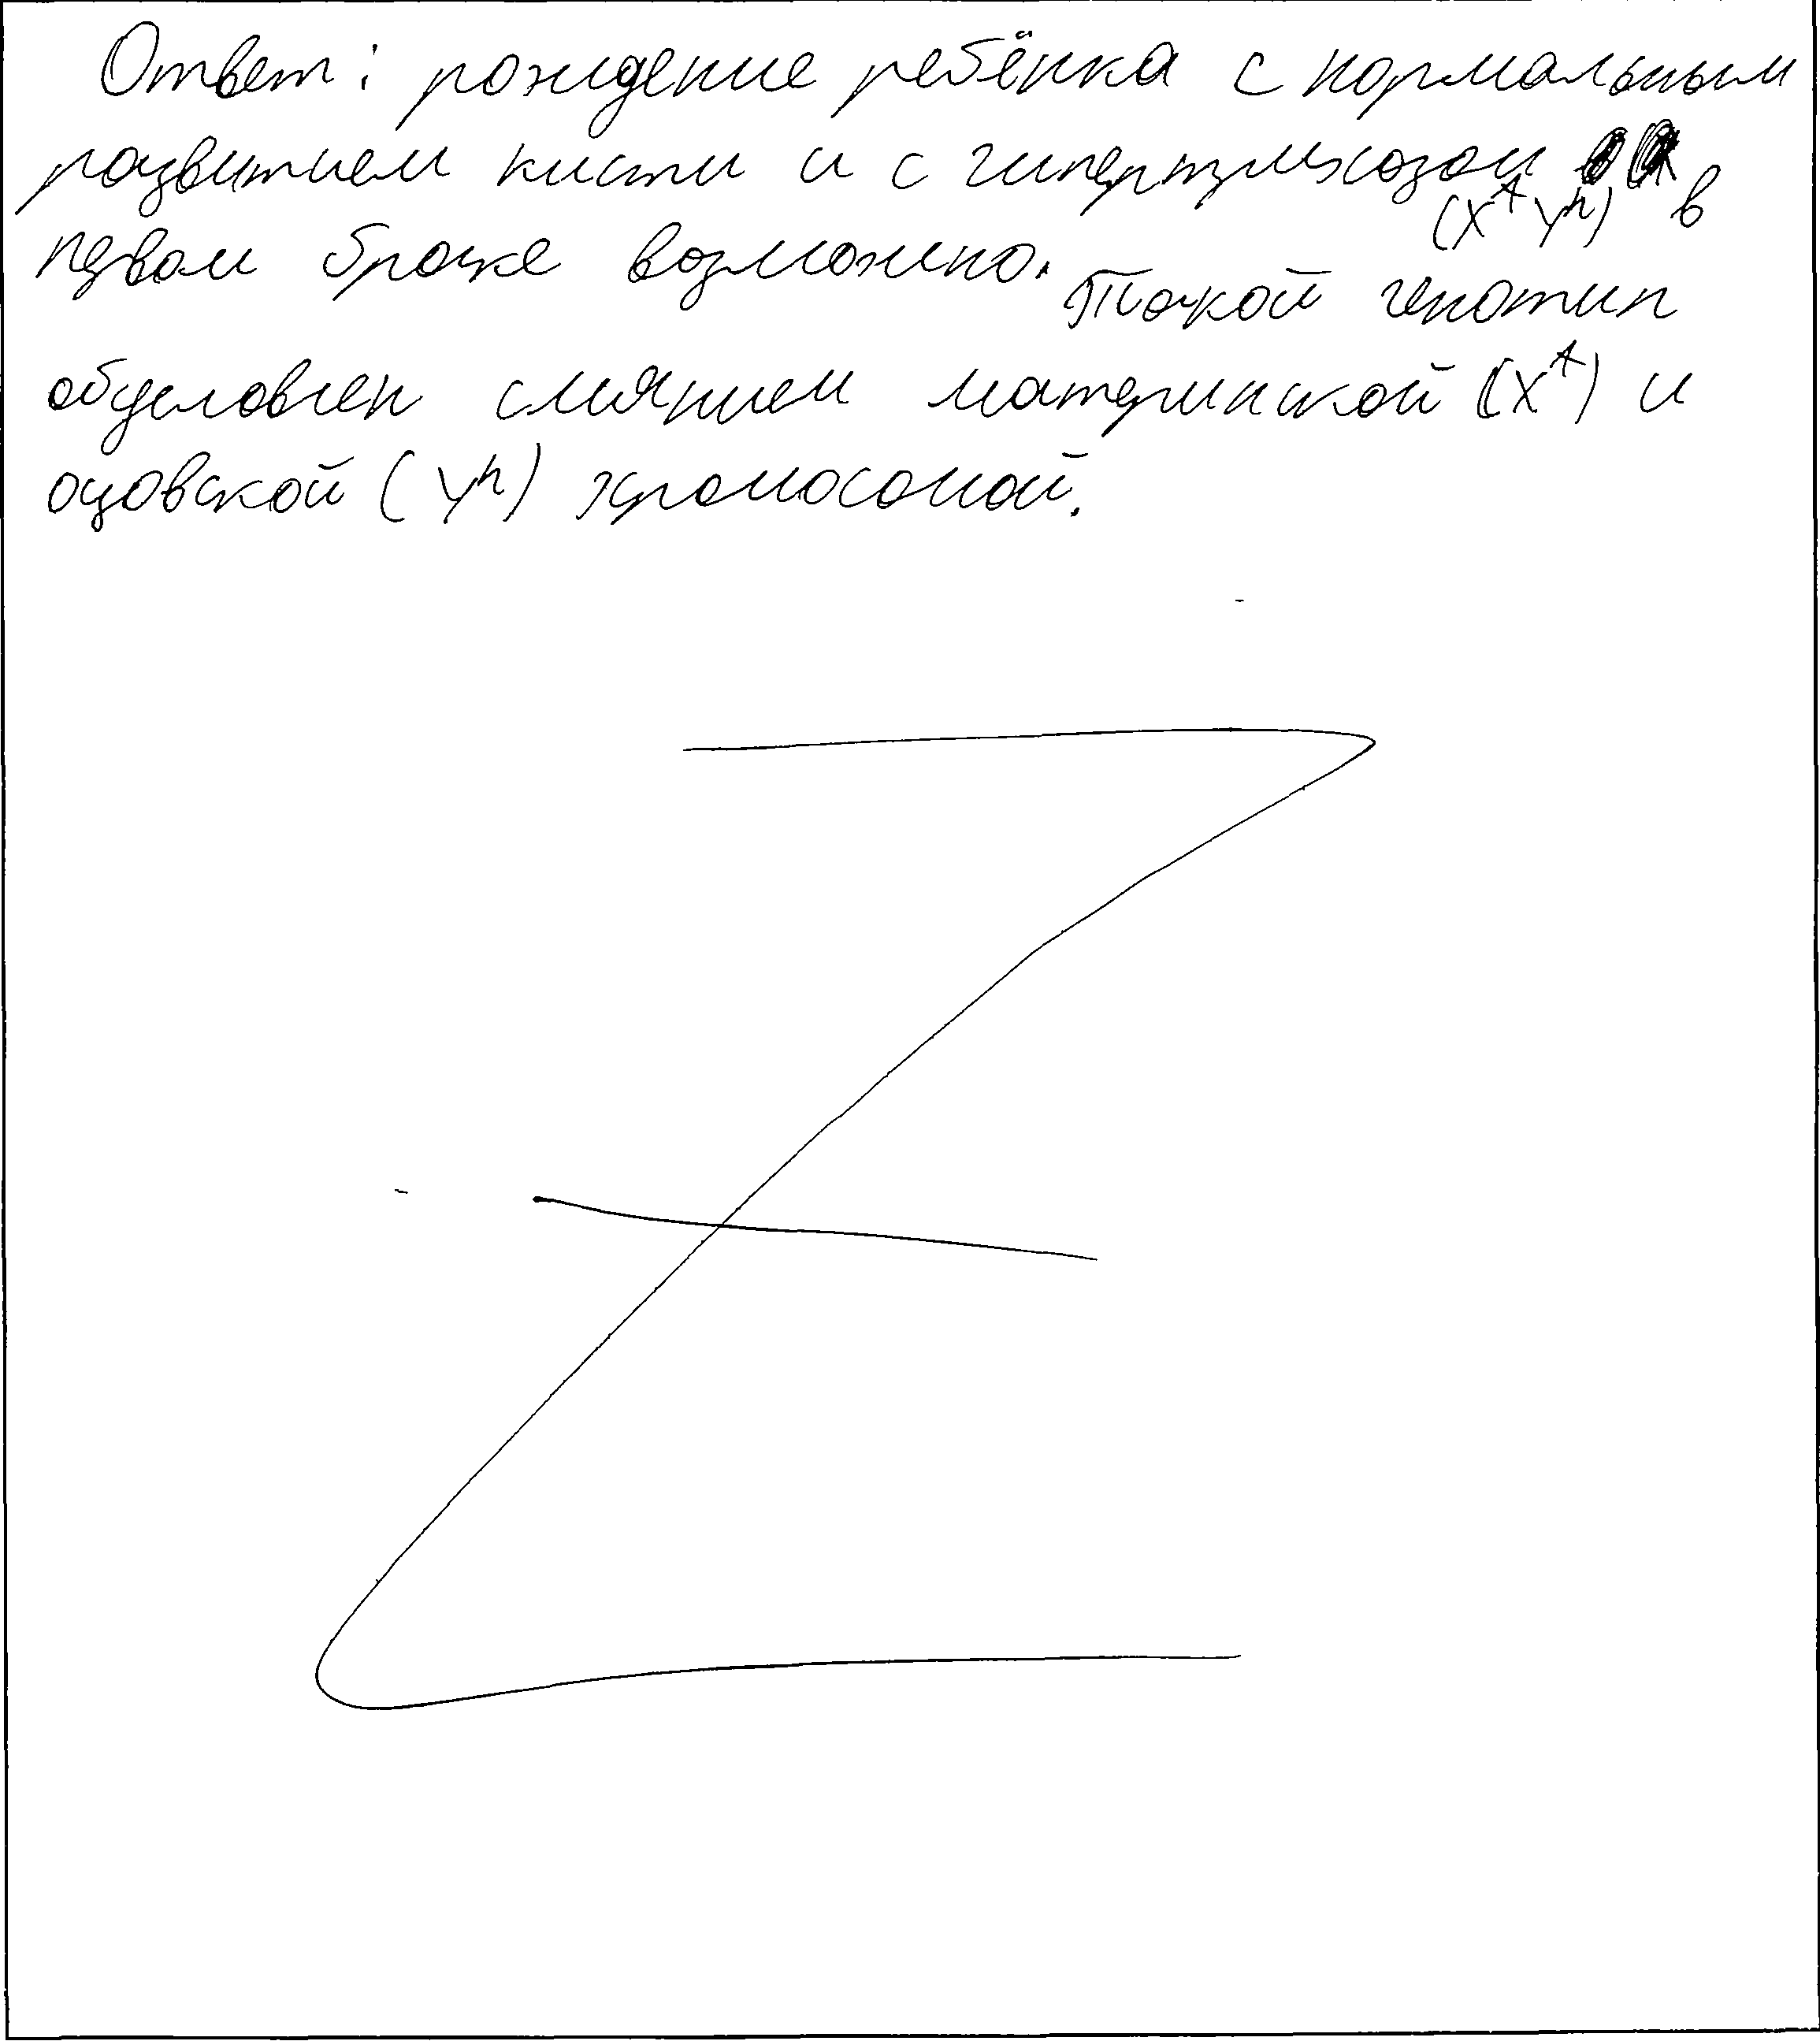 Ответ: рождение ребёнка с нормальным
развитием кисти и с гипертрихозом в
(X^A Y^h)
первом браке возможно. Такой генотип
обусловлен слиянием материнской (X^A) и
оцовской (Y^h) хромосомой.